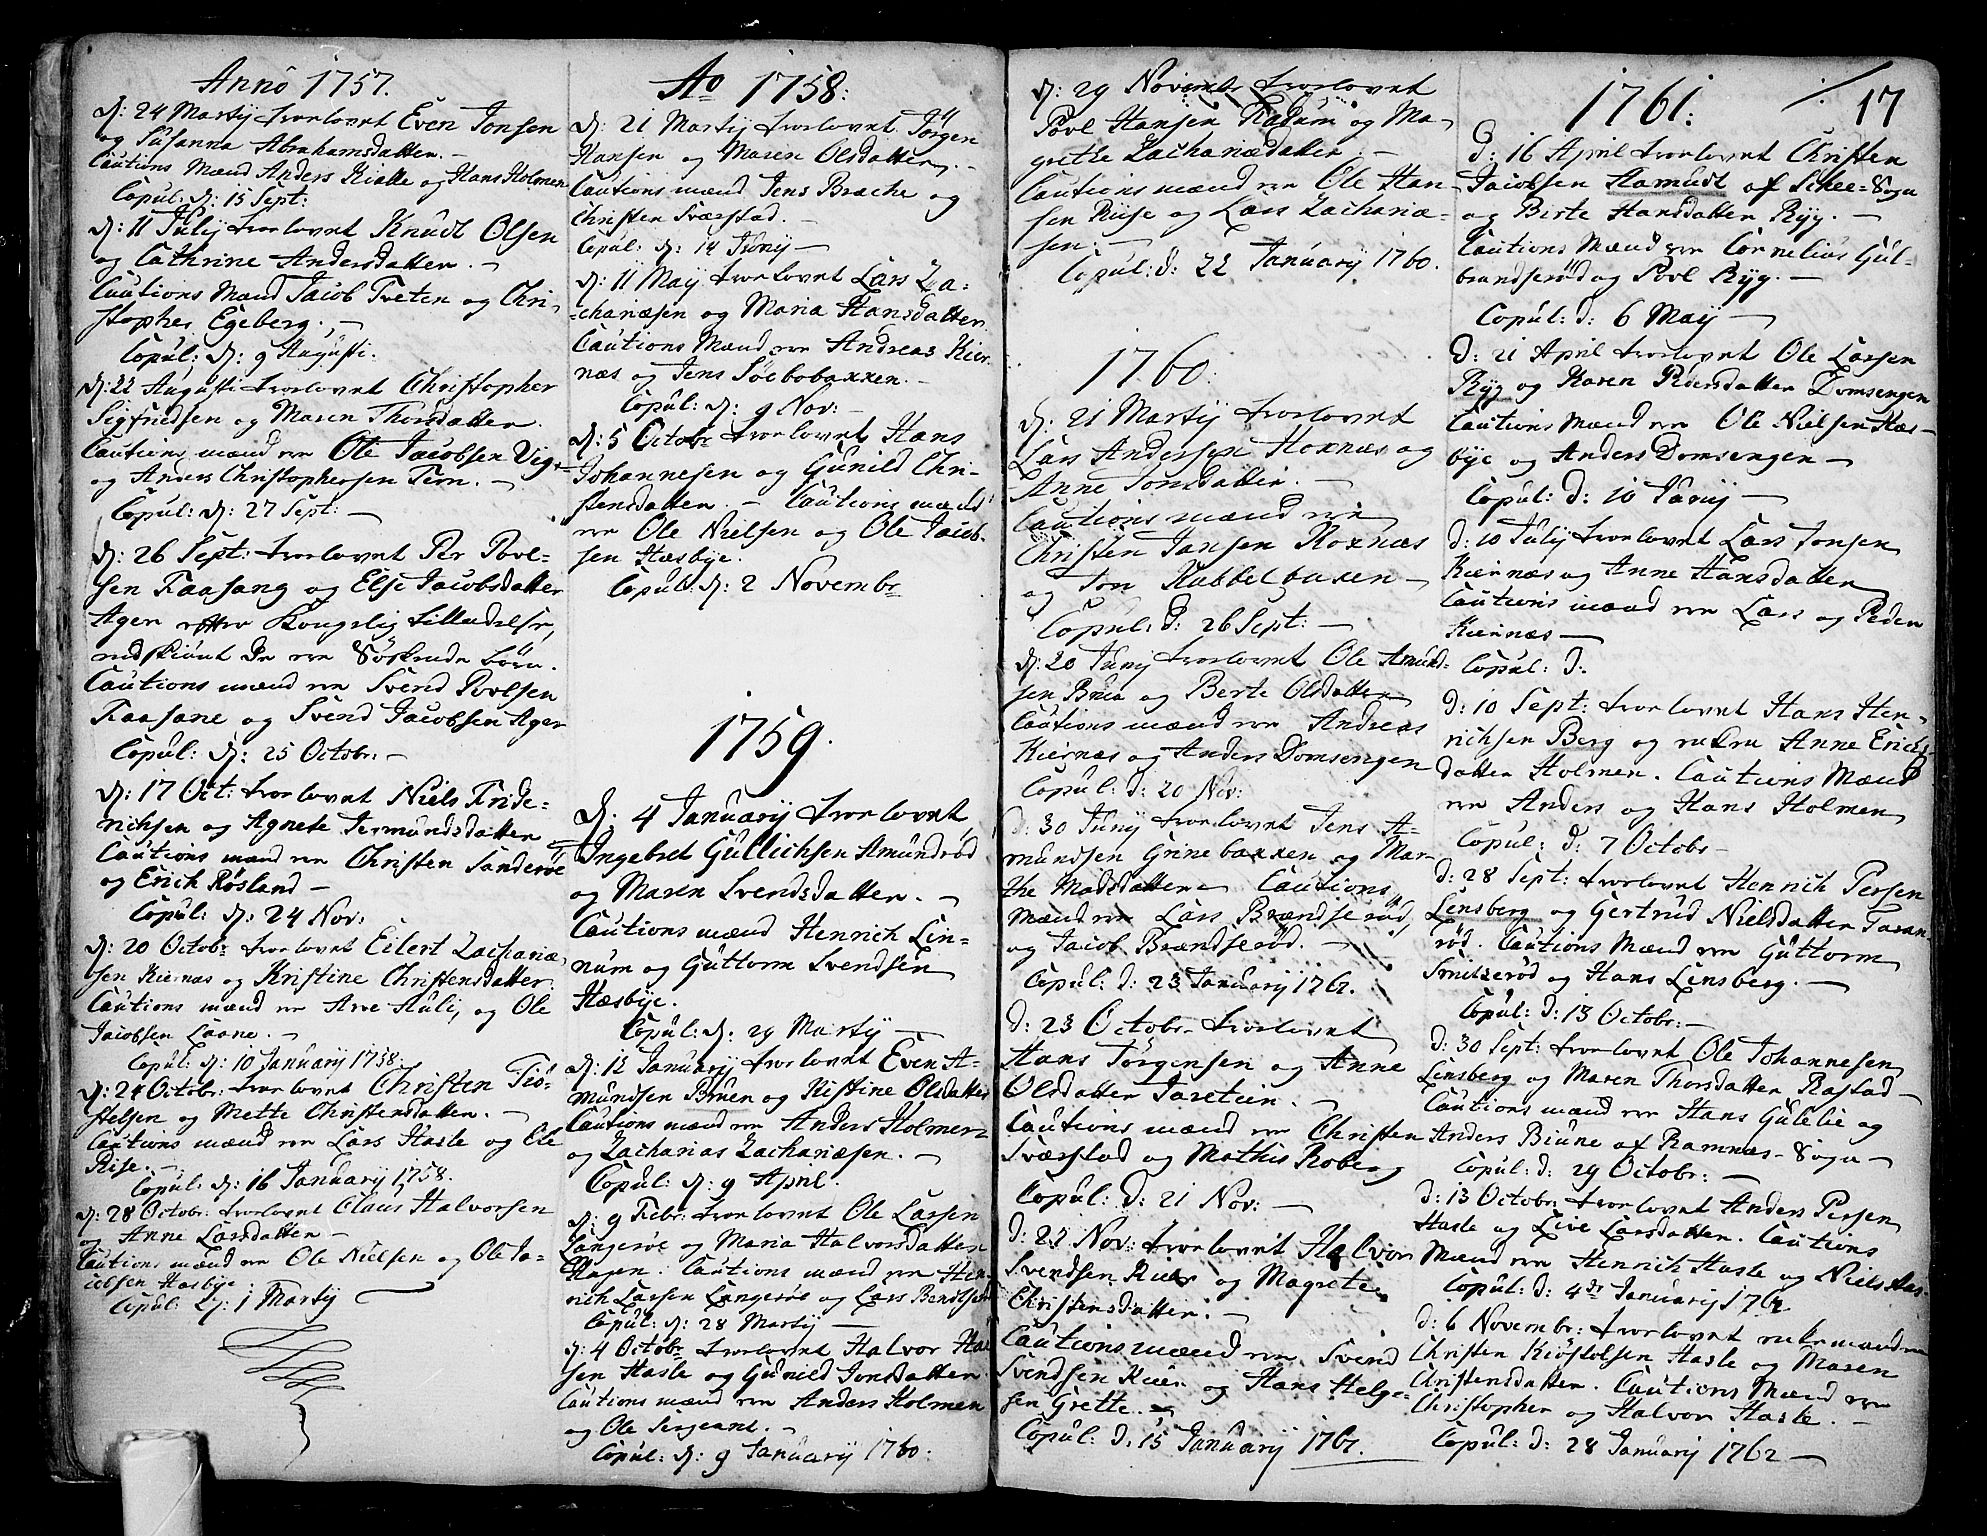 Anno 1757.
d: 24 Martij trorlovet Even Jonsen
og Susanna Abrahamsdatter. –
Cautions Mænd Anders Kiølle og Hans Holmen
Copul: d: 15 Sept:
d: 11 Julij trorlovet Knudt Olsen
og Cathrine Andersdatter. –
Cautions Mænd Jacob Tveten og Chri-
stopher Egeberg. –
Copul: d: 9 Augusti.
d: 22 Augusti trorlovet Christopher
Sigfridsen og Maren Thorsdatter.
Cautions mænd ere Ole Jacobsen Vig
og Anders Christophersen Tern. –
Copul: d: 27 Sept: –
d: 26 Sept: trorlovet Per Povel-
sen Faasang og Else Jacobsdatter
Ager efter Kongelig Tilladelse,
endskiønt De ere Sødskende børn.
Cautions mænd ere Svend Povlsen
Faasane og Svend Jacobsen Ager
Copul: d: 25 Octobr: –
d: 17 Oct: trorlovet Niels Fride-
richsen og Agnete Jermundsdatter
Cautions mænd ere Christen Sanderøe
og Erich Røsland –
Copul: d: 24 Nov:
d: 20 Octobr trorlovet Eilert Zachariæ-
sen Kiernæs og Kristine Christensdatter.
Cautions mænd ere Arve Hulij, og Ole
Jacobsen Laane. –
Copul: d: 10 Januarij 1758.
d: 24 Octobr: trorlovet Christen Tiø-
stelsen og Mette Christensdatter. –
Cautions mænd ere Lars Hasle og Ole
Riise. –
Copul: d: 16 Januarij 1758.
d: 28 Octobr: trorlovet Claus Halvorsen
og Anne Larsdatter –
Cautions mænd ere Ole Nielsen og Ole Ja-
cobsen Hæsbye
Copul: d: 1 Martij
Ao 1758:
d: 21 Martij trorlovet Jørgen
Hansen og Maren Olsdatter, –
Cautions mænd Jens Bræche og
Christen Sværstad. –
Copul: d: 14 Junij –
d: 11 Maij trorlovet Lars Za-
chariæsen og Maria Hansdatter
Cautions Mænd ere Andreas Kier-
næs og Jens Søebobakken. –
Copul: d: 9 Nov: –
d: 5 Octobr trorlovet Hans
Johannesen og Gunild Chri-
stensdatter. – Cautions mænd
ere Ole Nielsen og Ole Jacob-
sen Hæsbye.
Copul: d: 2 Novembr
1759.
d: 4 Januarij trorlovet
Ingebret Gullichsen Amundrød
og Maren Svendsdatter. –
Cautions mænd Henrich Lin-
num og Guttorm Svendsen
Hæsbye.
Copul: d: 29 Martij –
d: 12 Januarij trorlovet Even A-
mundsen Bruen og Kistine Olsdatter
Cautions mænd ere Anders Holmen
og Zacharias Zachariæsen. –
Copul: d: 9 April.
d: 9 Febr: trorlovet Ole Larsen
Langerøe og Maria Halvorsdatter
Hagen. Cautions mænd ere Hen-
rich Larsen Langerøe og Lars Bendtsen
Copul: d: 28 Martij –
d: 4 Octobr trorlovet Halvor Hal
sen Hasle og Gunild Jonsdatter
Cautions mænd ere Anders Holmen
og Ole Sergeant. –
Copul: d: 9 Januarij 1760:
17
d: 29 Novembr trorlovet
Povl Hansen Kadum og Ma-
grethe Zachariædatter –
Cautions mænd ere Ole Han-
sen Riise og Lars Zachariæ-
sen. –
Copul: d: 22 Januarij 1760.
1760:
d: 21 Martij trorlovet
Lars Andersen Hoxnæs og
Anne Jonsdatter. –
Cautions mænd ere
Christen Jansen Hoxnæs
og Jon Kabbelbaxen –
Copul: d: 26 Sept: –
d: 20 Junij trorlovet Ole Amund-
sen Brua og Berte Olsdatter
Cautions mænd ere Andreas
Kiernæs og Anders Domsengen
Copul: d: 20 Nov:
d: 30 Junij trorlovet Jens A-
mundsen Grinebakken og Mar-
the Madsdatter Cautions
Mænd ere Lars Brændserød,
og Jacob Brændserød. –
Copul: d: 23 Januarij 1761.
d: 23 Octobr trorlovet
Hans Jørgensen og Anne
Olsdatter Taretien. –
Cautions mænd ere Christen
Sværstad og Mathis Roberg
Copul: d: 21 Nov: –
d: 22 Nov: trorlovet Halvor
Svendsen Kiær og Magrete
Christensdatter. –
Cautions mænd ere Svend
Svendsen Kiær og Hans Helge-
sen Grette. –
Copul: d: 15 Januarij 1761.
1761:
d: 16 April trorlovet Christen
Jacobsen Hamudt af Schee-Sogn
og Berte Hansdatter Ryg. –
Cautions Mænd ere Cornelius Gul-
brandserød og Povl Ryg. –
Copul: d: 6 Maij –
d: 21 April trorlovet Ole Larsen
Ryg og Karen Pedersdatter Domsengen
Cautions mænd ere Ole Nielsen Hæs-
bye og Anders Domsengen –
Copul: d: 10 Junij –
d: 10 Julij trorlovet Lars Jonsen
Kiernæs og Anne Hansdatter
Cautions mænd ere Lars og Peder
Kiernæs –
Copul: d.
d: 10 Sept: trorlovet Hans Hen-
richsen Berg og enken Anne Erichs-
datter Holmen. Cautions Mænd
ere Anders og Hans Holmen
Copul: d: 7 Octobr –
d: 28 Sept: trorlovet Henrich Persen
Linsberg og Gertrud Nielsdatter Taran-
rød. Cautions Mænd ere Guttorm
Smitserød og Hans Linsberg. –
Copul: d: 13 Octobr: –
d: 30 Sept: trorlovet Ole Johannesen
Linsberg og Maren Thorsdatter Rastad –
Cautions mænd ere Hans Gulelie og
Anders Biune af Ramnæs-Sogn –
Copul: d: 29 Octobr: –
d: 13 Octobr: trorlovet Anders Persen
Hasle og Live Larsdatter. Cautions
Mænd ere Henrich Hasle og Niels Has-
Copul: d: 4de Januarij 1762
d: 6 Novembr: trorlovet enkemanden
Christen Kiøstolsen Hasle og Maren
Christensdatter. Cautions Mænd ere
Christopher og Halvor Hasle. –
Copul: d: 28 Januarij 1762 –